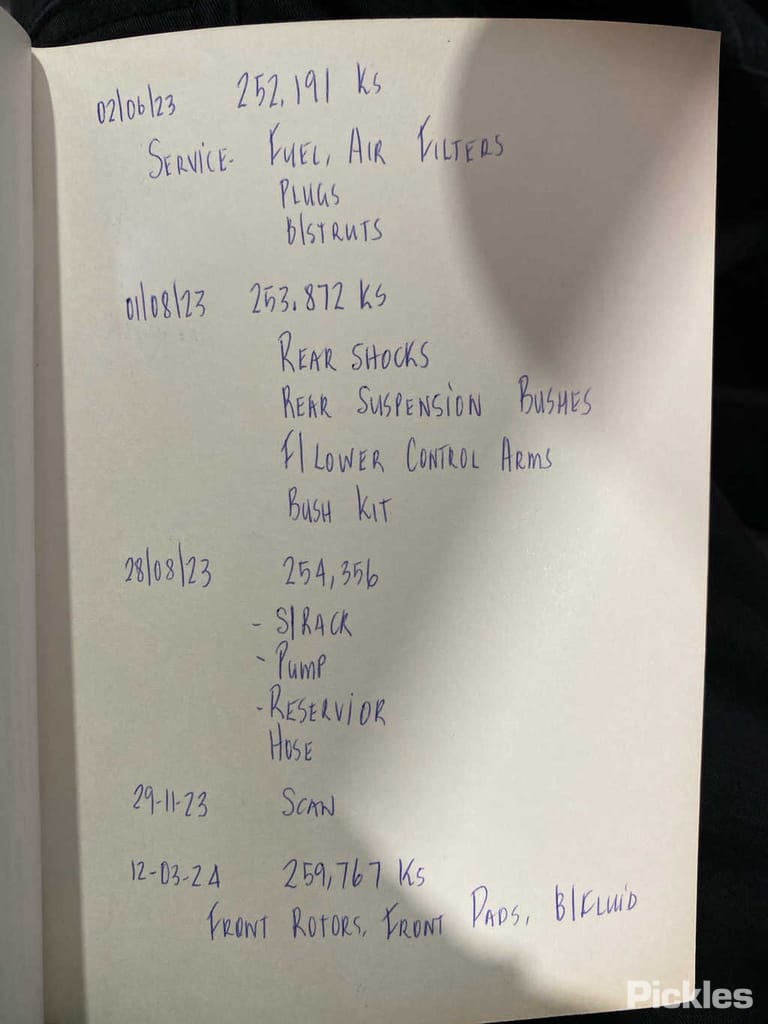 02/06/23 252,191 Ks
SERVICE- FUEL, AIR FILTERS
PLUGS
B/STRUTS
01/08/23 253.872 KS
REAR SHOCKS
REAR SUSPENSION BUSHES
F/ LOWER CONTROL ARMS
BUSH KIT
28/08/23 254,356
- S/RACK
- PUMP
- RESERVIOR
HOSE
29-11-23 SCAN
12-03-24 259,767 KS
FRONT ROTORS, FRONT PADS, B/FLUID
Pickles